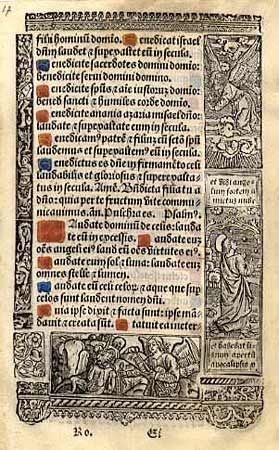 17
filij hominū domino. Benedicat israel
dn̄m laudet ⁊ superexaltet eū in secula.
Benedicite sacerdotes domini domino:
benedicite serui domini domino.
Benedicite spūs ⁊ aīe iustorū domino:
bened sancti ⁊ humiles corde domino.
Benedicite anania azaria misael dn̄o:
laudate ⁊ superexaltate eum in secula.
Benedicam9 patrē ⁊ filiū cū sctō spū
laudem9 ⁊ superexaltem9 eū in secula.
Benedictus es dn̄e in firmamēto celi:
laudabilis et gloriosus ⁊ superexalta
tus in secula. Amē. Bn̄dicta filia tu a
dn̄o: quia per te fructum vite commu
nicauimus. an̄. Pulchra es. Psalm9.
Laudate dominum de celis: lauda
te eū in excelsis. Laudate eum
oēs angeli ei9: laudate eū oēs virtutes ei9.
Laudate eum sol ⁊ luna: laudate eum
omnes stelle ⁊ lumen.
Laudate eū celi celorum: ⁊ aque que sup
celos sunt laudent nomen dn̄i.
Quia ipse dixit ⁊ facta sunt: ipse mā
dauit ⁊ creata sūt. Statuit ea in eter
et
amictus nube
et
apocalipsis
Ro.